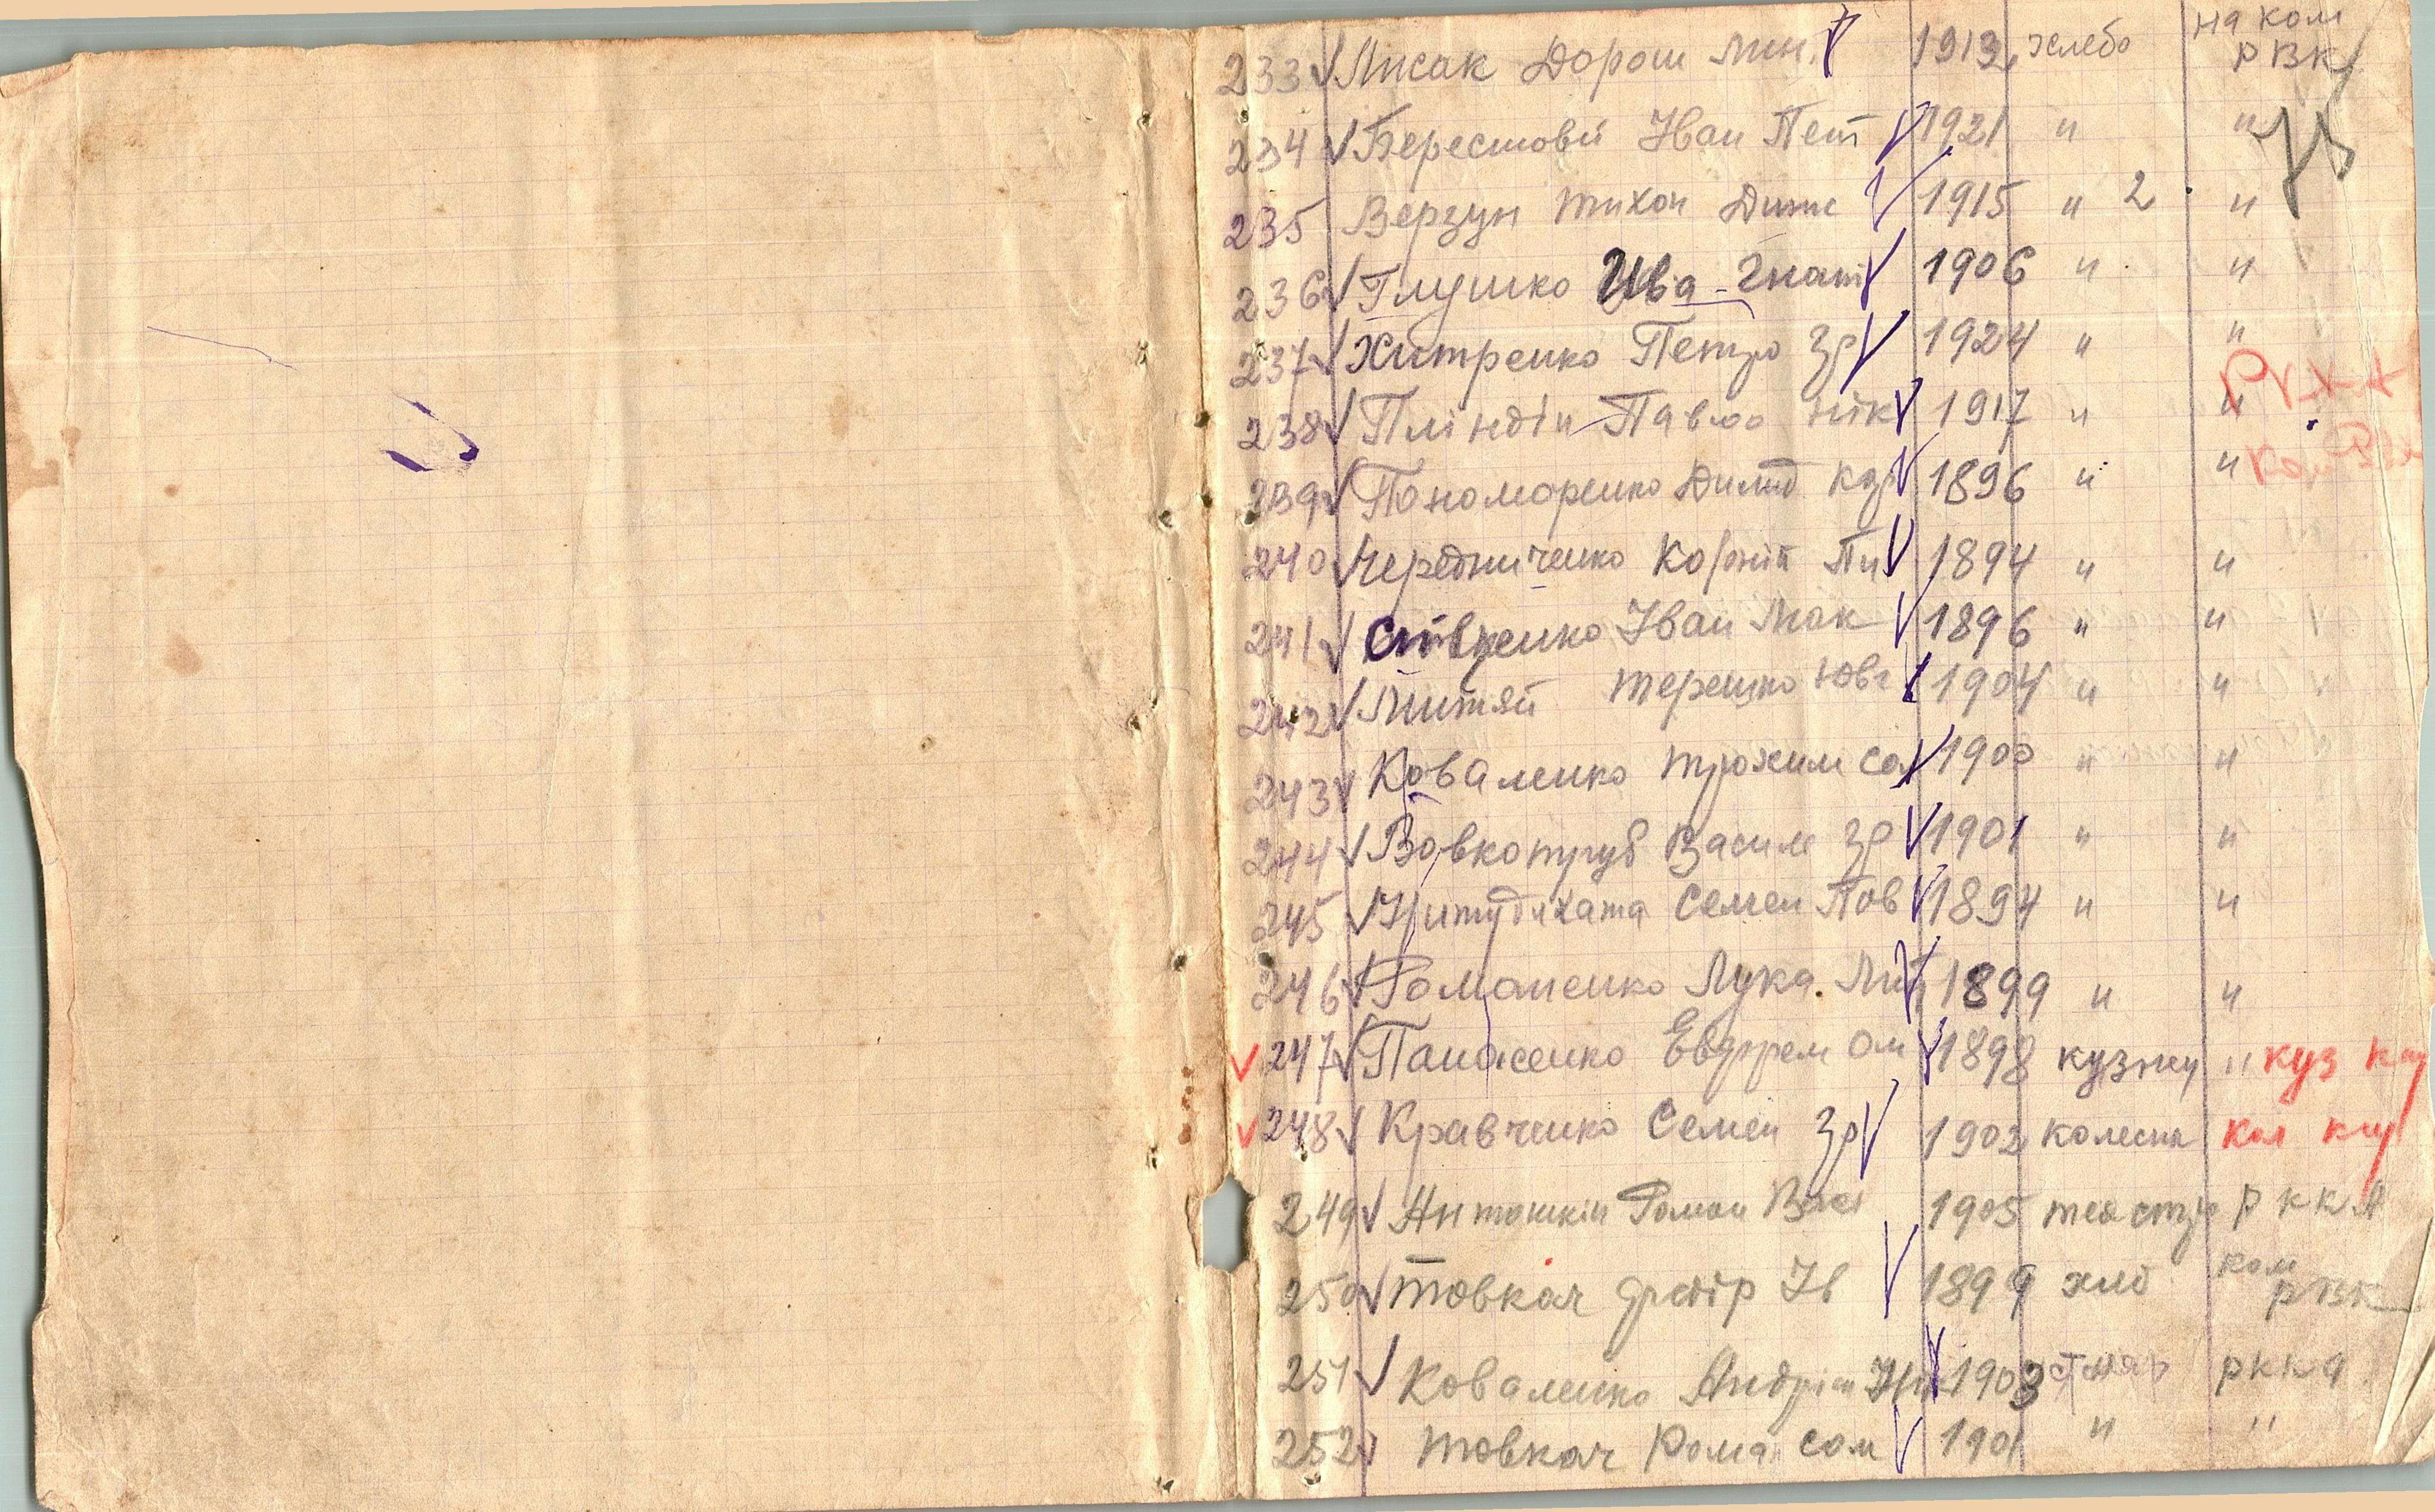 233 Лисак Дорош Мин. 1913 хлебо на ком РВК
234 Берестовий Іван Пет 1921 " "
235 Верзун Тихон Динис 1915 " 2 "
236 Глушко Ива Гнат 1906 " "
237 Хитренко Петро Гр 1924 " "
238 Пліндін Павло Нік 1917 " " РККА
239 Пономаренко Димид 1896 " " Ком РВК
240 Чередниченко Корній Пи 1894 " "
241 Іван Мак 1896 " "
242 Митяй Терешко Юв 1904 " "
243 Коваленко Трохим Сам 1900 " "
244 Вовкотруб Василь Гр 1901 " "
245 Семен Пав 1894 " "
246 Романенко Лука Мит 1899 " "
247 Панасенко Евдрем Ом 1898 кузнец " куз
248 Кравченко Семен Гр 1902 колесн кол
249 Антошкін Роман Вас 1905 РККА
250 Товкач Ів 1899 хліб ком РВК
251 Коваленко Андрій 1903 РККА
252 Товкач Рома Сам 1901 " "